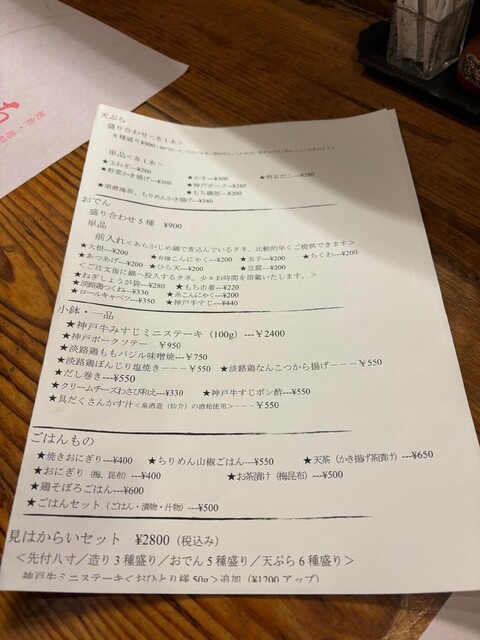 天ぷら
盛り合わせ＜各1本＞
8種盛り¥900
単品＜各1本＞
★玉ねぎ---¥200
★かき---¥300
★明石だこ---¥280
★野菜かき揚げ---¥500
★神戸ポーク---¥280
★もち磯部---¥200
★須磨海苔、ちりめんかき揚げ---¥380
おでん
盛り合わせ5種　¥900
単品
前入れ＜あらかじめ鍋で煮込んでいるタネ。比較的早くご提供できます＞
★大根---¥200　★有機こんにゃく---¥200　★玉子---¥200　★ちくわ---¥200
★あつあげ---¥200　★ひら天---¥200　★豆腐---¥200
＜ご注文後に鍋へ投入するタネ。少々お時間を頂戴いたします。＞
★ねぎしょうが袋---¥280　★もち巾着---¥220
★淡路鶏つくね---¥330　★糸こんにゃく---¥200
★ロールキャベツ---¥350　★神戸牛すじ---¥440
小鉢・一品
★神戸牛みすじミニステーキ（100g）---￥2400
★神戸ポークソテー　￥950
★淡路鶏ももバジル味噌焼---￥750
★淡路鶏ぼんじり塩焼き－－－￥550　★淡路鶏なんこつから揚げ－－－￥550
★だし巻き---¥550
★クリームチーズわさび和え---¥330　★神戸牛すじポン酢---¥550
★具だくさんかす汁＜泉酒造（仙介）の酒粕使用＞－－－￥550
ごはんもの
★焼きおにぎり---¥400　★ちりめん山椒ごはん---¥550　★天茶（かき揚げ茶漬け）---¥650
★おにぎり（梅、昆布）---¥400　★お茶漬け（梅昆布）---¥500
★鶏そぼろごはん---¥600
★ごはんセット（ごはん・漬物・汁物）---¥500
見はからいセット　¥2800（税込み）
＜先付八寸／造り3種盛り／おでん5種盛り／天ぷら6種盛り＞
神戸牛ミニステーキ＜おひとり様50g＞追加（¥1200アップ）